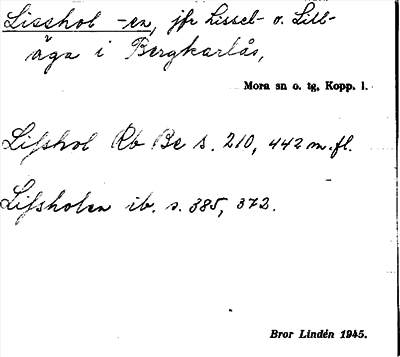 Lisshol -en, jfr Lissel- o. Lill-
äga i Bergkarlås,
Mora sn o. tg, Kopp. l.
Lifshol Rb Be s. 210, 442 m.fl.
Lifsholen ib. s. 385, 372.
Bror Lindén 1945.